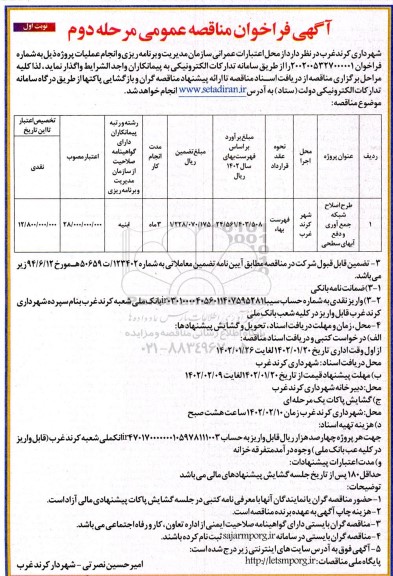 نوبت اول
آگهی فراخوان مناقصه عمومی مرحله دوم
شهرداری کرندغرب در نظر دارد از محل اعتبارات عمرانی سازمان مدیریت و برنامه ریزی و انجام عملیات پروژه ذیل به شماره
فراخوان ۲۰۰۲۰۰۵۳۲۷۰۰۰۰۰۱ را از طریق سامانه تدارکات الکترونیکی به پیمانکاران واجد الشرایط واگذار نماید. لذا کلیه
مراحل برگزاری مناقصه از دریافت اسناد مناقصه تا ارائه پیشنهاد مناقصه گران و بازگشایی پاکتها از طریق درگاه سامانه
تدارکات الکترونیکی دولت (ستاد) به آدرس www.setadiran.ir انجام خواهد شد.
موضوع مناقصه:
ردیف | عنوان پروژه | محل اجرا | نحوه عقد قرارداد | مبلغ برآورد بر اساس فهرست‌بهای سال ۱۴۰۲ ریال | مبلغ تضمین ریال | مدت انجام کار | رشته و رتبه پیمانکاران دارای گواهینامه صلاحیت از سازمان مدیریت و برنامه ریزی | اعتبار مصوب | تخصیص اعتبار تا این تاریخ نقدی
۱ | طرح اصلاح شبکه جمع آوری و دفع آبهای سطحی | شهر کرند غرب | فهرست بهاء | ۲۴/۵۶۱/۴۰۳/۵۰۸ | ۱/۲۲۸/۰۷۰/۱۷۵ | ۳ ماه | ابنیه | ۲۸/۰۰۰/۰۰۰/۰۰۰ | ۱۲/۸۰۰/۰۰۰/۰۰۰
۳- تضمین قابل قبول شرکت در مناقصه مطابق آیین نامه تضمین معاملاتی به شماره ۱۲۳۴۰۲/ت ۵۰۶۵۹ هـ مورخ ۹۴/۶/۱۲ زیر
می باشد.
۳-۱) ضمانت نامه بانکی
۳-۲) واریز نقدی به شماره حساب سیبا
بانک ملی شعبه کرند غرب بنام سپرده شهرداری
کرندغرب قابل واریز در کلیه شعب بانک ملی
۴- محل، زمان و مهلت دریافت اسناد، تحویل و گشایش پیشنهادها:
الف) درخواست کتبی و دریافت اسناد مناقصه:
از اول وقت اداری تاریخ ۱۴۰۲/۰۱/۲۰ لغایت ۱۴۰۲/۰۱/۲۶
محل دریافت اسناد: شهرداری کرند غرب
ب) مهلت پیشنهاد قیمت از تاریخ ۱۴۰۲/۰۱/۲۰ لغایت ۱۴۰۲/۰۲/۰۹
محل: دبیرخانه شهرداری کرند غرب
ج) گشایش پاکات یک مرحله ای
محل: شهرداری کرند غرب زمان ۱۴۰۲/۰۲/۱۰ ساعت هشت صبح
د) هزینه تهیه اسناد:
جهت هر پروژه چهارصد هزار ریال قابل واریز به حساب
بانک ملی شعبه کرند غرب (قابل واریز
در کلیه شعب بانک ملی) وجوه درآمد متفرقه خزانه
و) مدت اعتبارات پیشنهادات:
حداقل ۱۸۰ پس از تاریخ جلسه گشایش پیشنهادهای مالی می باشد
توضیحات:
۱- حضور مناقصه گران یا نمایندگان آنها با معرفی نامه کتبی در جلسه گشایش پاکات پیشنهادی مالی آزاد است.
۲- هزینه چاپ آگهی به عهده برنده مناقصه است.
۳- مناقصه گران بایستی دارای گواهینامه صلاحیت ایمنی از اداره تعاون، کار و رفاه اجتماعی می باشد.
۴- مناقصه گران بایستی در سامانه sajarmporg.ir ثبت نام کرده باشند.
۵- آگهی فوق به آدرس سایت های اینترنتی زیر درج شده است:
پایگاه ملی مناقصات: http://letsmporg.ir
امیرحسین نصرتی - شهردار کرند غرب